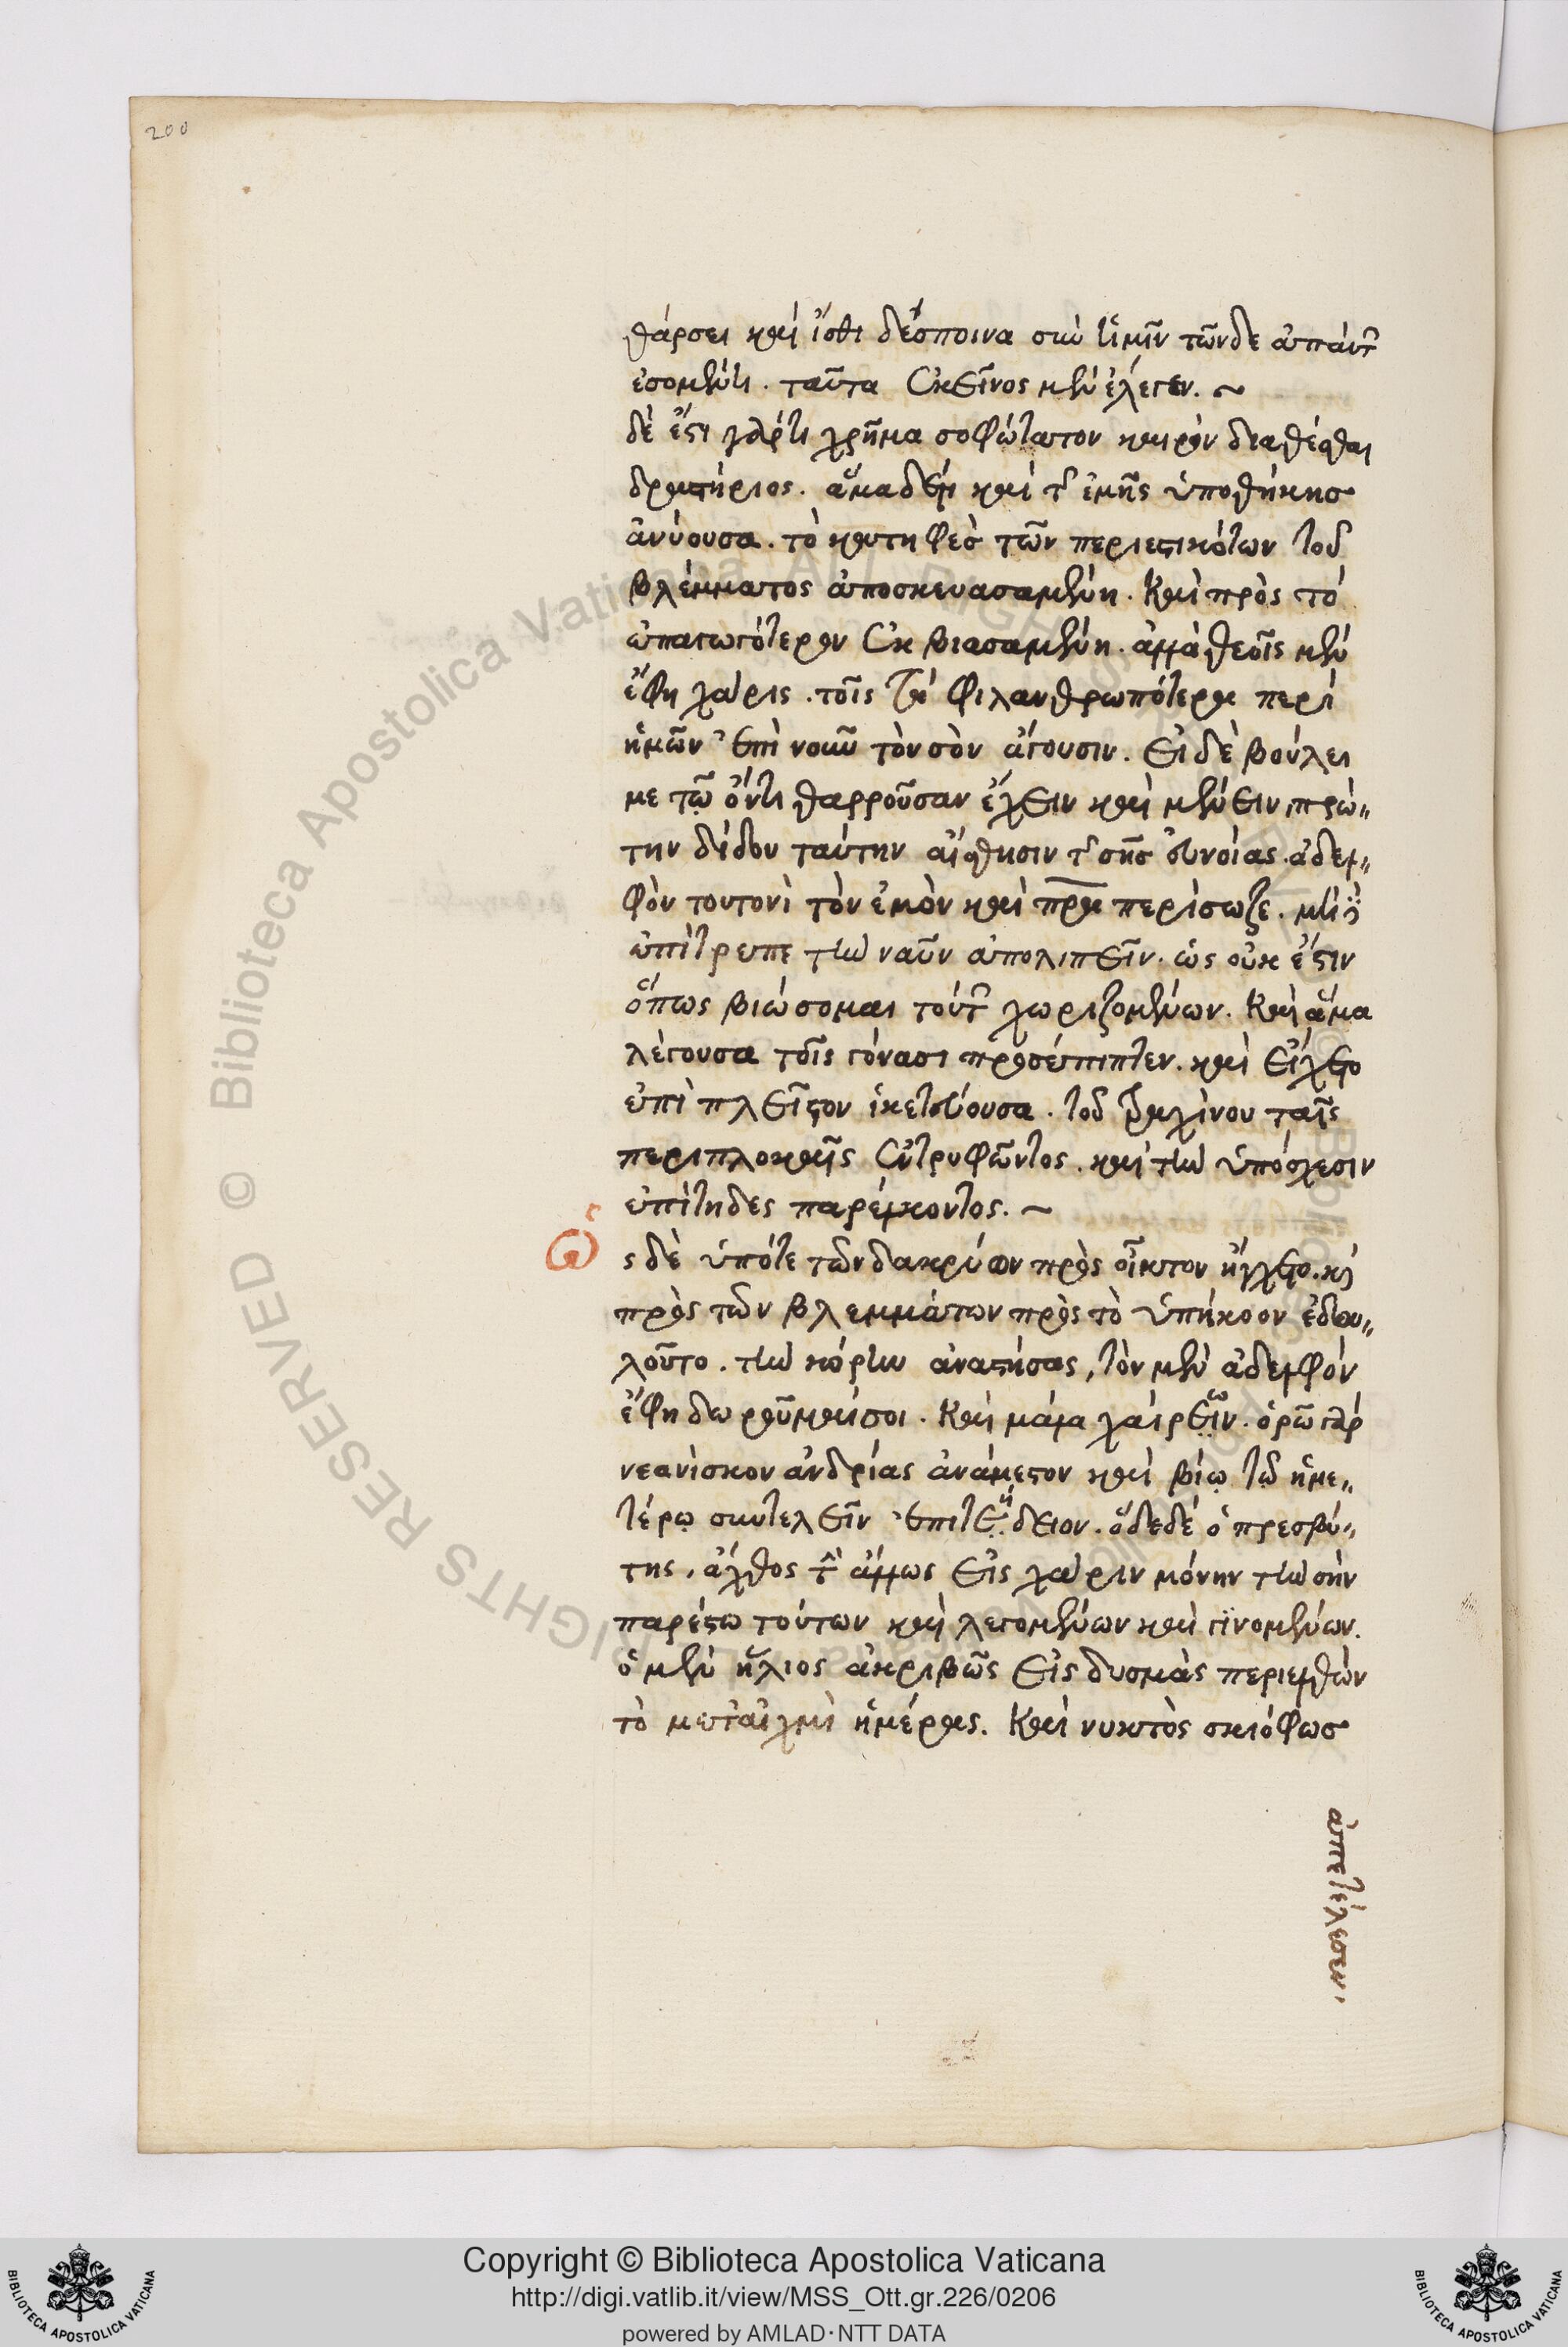 200
θάρσει καὶ ἴσθι δέσποινα σὺν ἡμῖν τῶνδε ἁπάντων
ἐσομένη . ταῦτα ἐκεῖνος μὲν ἔλεγεν . ~
δὲ ἔστι γάρ τι χρῆμα σοφώτατον καιρὸν διαθέσθαι
δραστήριος . ἅμα δέ τι καὶ τῆς ἐμῆς ὑποθήκης
ἀνύουσα . τὸ κατηφὲς τῶν περιεστηκότων τοῦ
βλέμματος ἀποσκευασαμένη . Καὶ πρὸς τὸ
ἐπαγωγότερον ἐκβιασαμένη . ἀλλὰ θεοῖς μὲν
ἔφη χάρις . τοῖς τὰ φιλανθρωπότερα περὶ
ἡμῶν ἐπὶ νοῦν τὸν σὸν ἄγουσιν . Εἰ δὲ βούλει
με τῷ ὄντι θαρροῦσαν ἔχειν καὶ μένειν, πρώ„
την δίδου ταύτην αἴσθησιν τῆς σῆς εὐνοίας . ἀδελ„
φὸν τουτονὶ τὸν ἐμὸν καὶ πρα περίσωζε . μηδ
ἐπίτρεπε τὴν ναῦν ἀπολιπεῖν . ὡς οὐκ ἔστιν
ὅπως βιώσομαι τούτων χωριζομένων . Καὶ ἅμα
λέγουσα τοῖς γόνασι προσέπιπτεν . καὶ εἴχετο
ἐπὶ πλεῖστον ἱκετεύουσα . τοῦ τραχίνου ταῖς
περιπλοκαῖς ἐντρυφῶντος . καὶ τὴν ὑπόσχεσιν
ἐπίτηδες παρέλκοντος . ~
Ὡς δὲ ὑπότε τῶν δακρύων πρὸς οἶκτον ἤγχετο . καὶ
πρὸς τῶν βλεμμάτων πρὸς τὸ ὑπήκοον ἐδου„
λοῦτο . τὴν κόρην ἀναστήσας, τὸν μὲν ἀδελφὸν
ἔφη δωροῦμαί σοι . Καὶ μάλα χαίρειν ω . ὁρῶ γὰρ
νεανίσκον ἀνδρίας ἀνάμεστον καὶ βίῳ τῷ ἡμε„
τέρῳ συντελεῖν ἐπιτειήδειον . ὅδε δὲ ὁ πρεσβύ„
της, ἄχθος τὴν ἄλλως εἰς χάριν μόνην τὴν σὴν
παρέστω τούτων καὶ λεγομένων καὶ γινομένων .
ὁ μὲν ἥλιος ἀκριβῶς εἰς δυσμὰς περιελθὼν
τὸ μεταίχμιον ἡμέρας . Καὶ νυκτὸς σκιόφως
ἀπετέλεσεν,
Copyright © Biblioteca Apostolica Vaticana
http://digi.vatlib.it/view/MSS_Ott.gr.226/0206
powered by AMLAD·NTT DATA
BIBLIOTECA APOSTOLICA VATICANA
BIBLIOTECA APOSTOLICA VATICANA